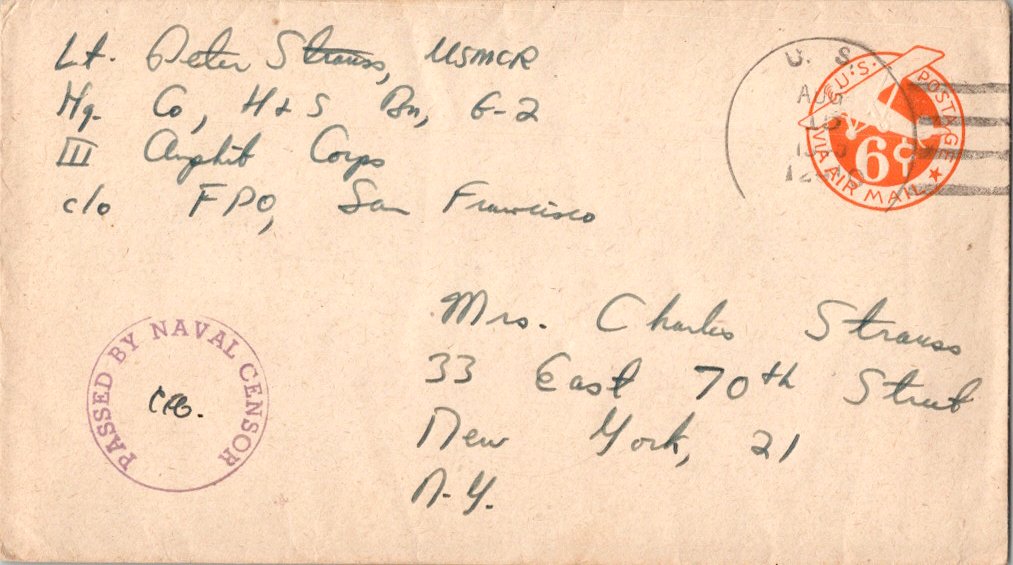 Lt. Peter Strauss, USMCR
Hq. Co, H+S Bn, G-2
III Amphib Corps
c/o FPO, San Francisco
U. S.
AUG
U.S. POSTAGE
6¢
VIA AIR MAIL
Mrs. Charles Strauss
33 East 70th Street
New York, 21
N.Y.
PASSED BY NAVAL CENSOR